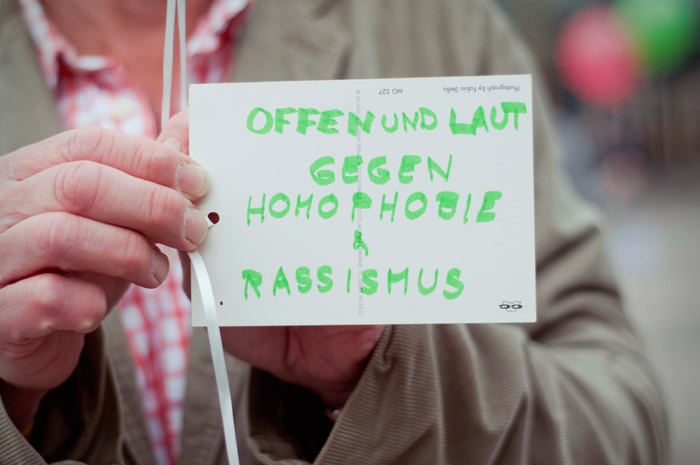 Photograph by Fabio Stella
MG 527
OFFEN UND LAUT
GEGEN
HOMOPHOBIE
&
RASSISMUS